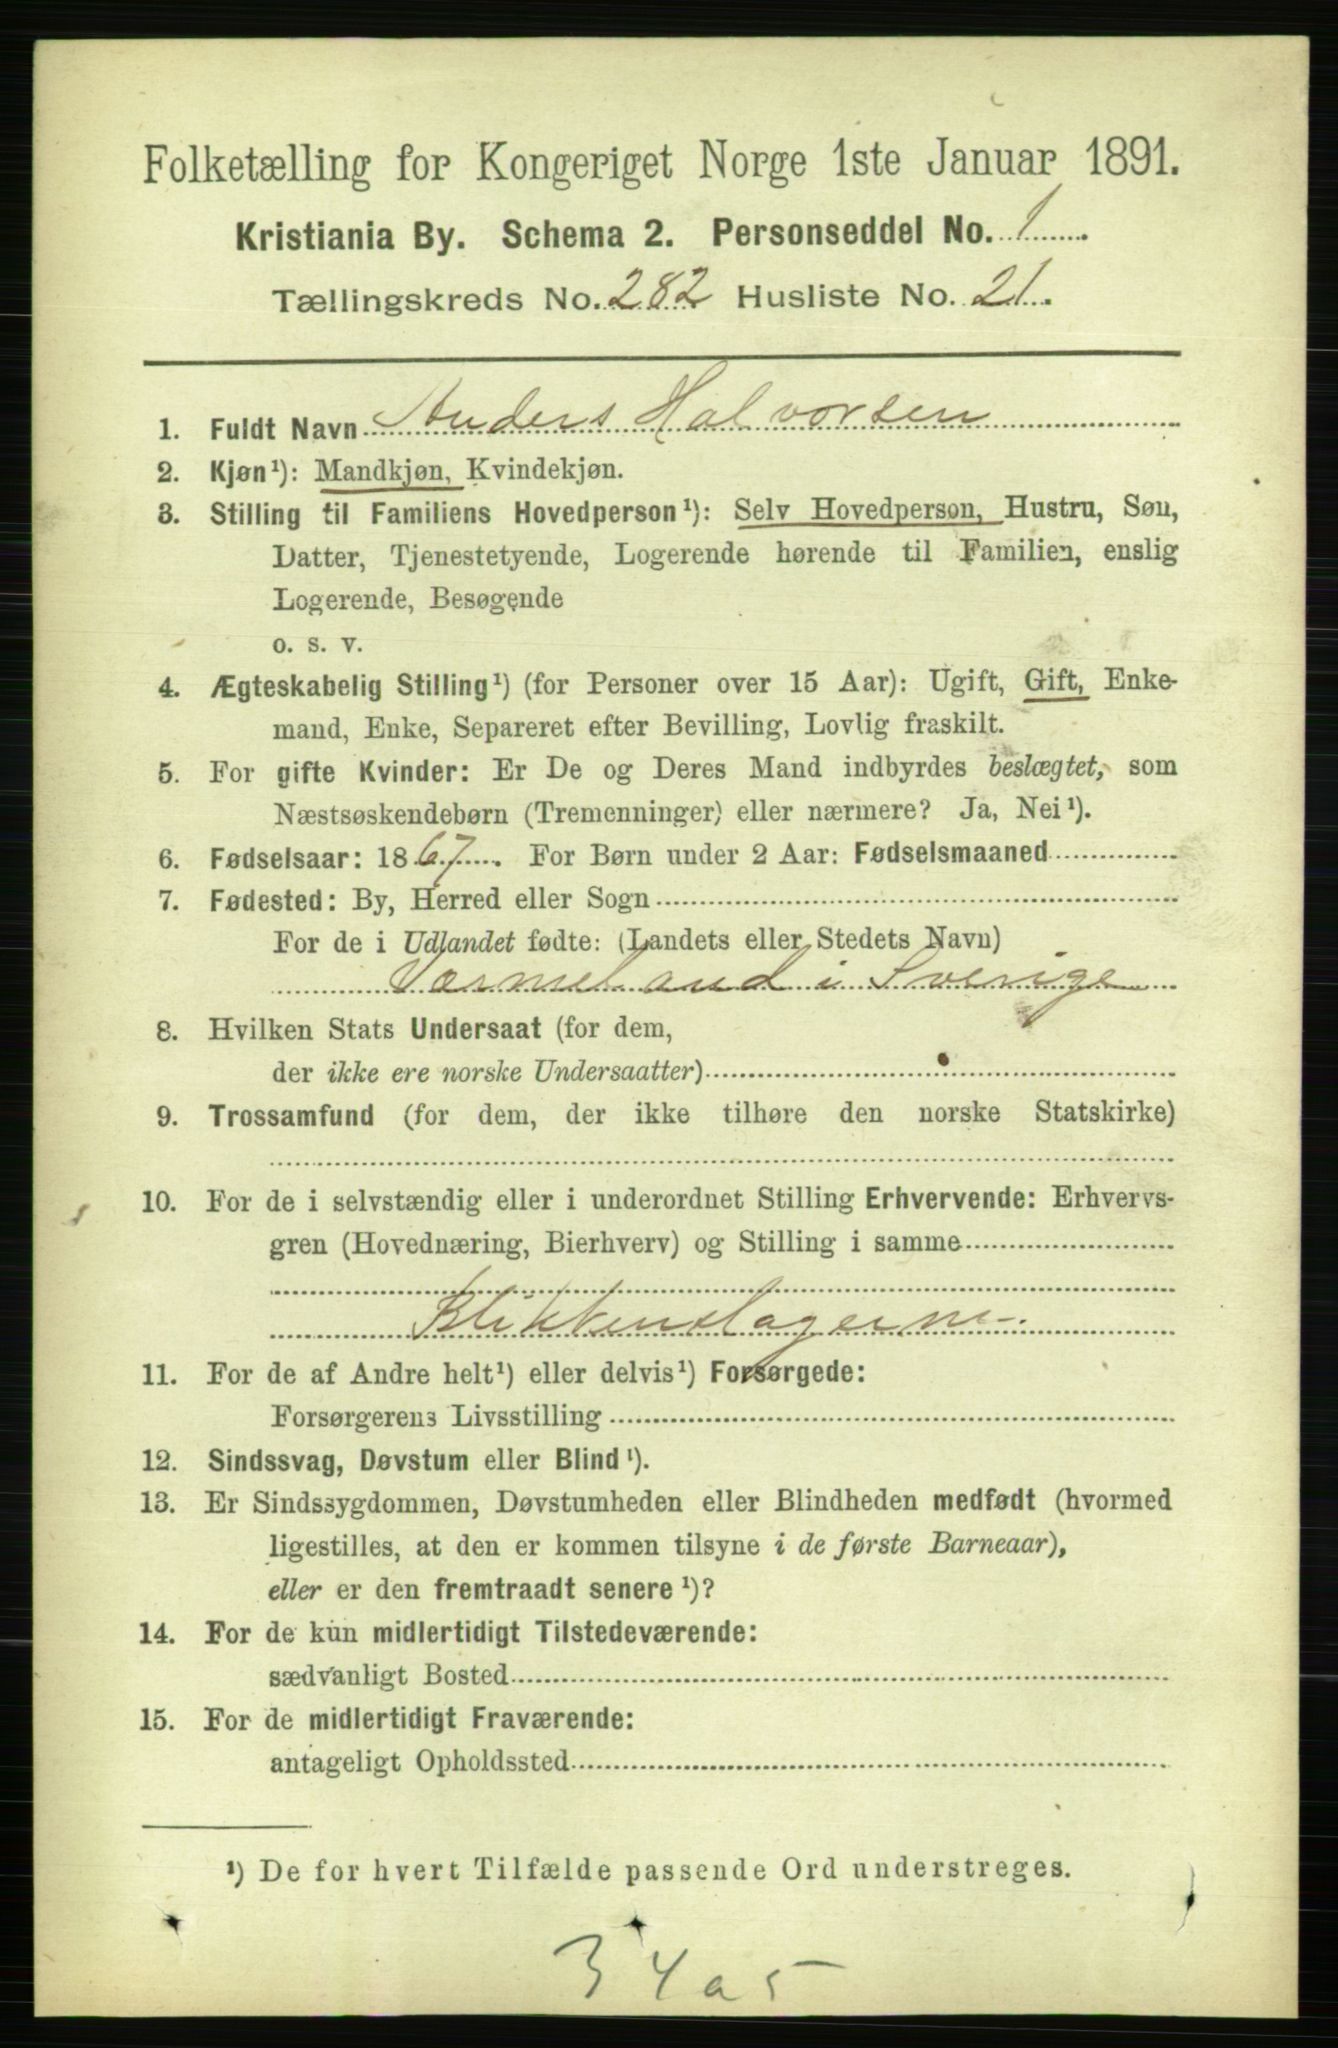 Folketælling for Kongeriget Norge 1ste Januar 1891.
Kristiania By. Schema 2. Personseddel No. 1
Tællingskreds No. 282 Husliste No. 21.
1. Fuldt Navn Anders Halvorsen
2. Kjøn¹): Mandkjøn, Kvindekjøn.
3. Stilling til Familiens Hovedperson¹): Selv Hovedperson, Hustru, Søn,
Datter, Tjenestetyende, Logerende hørende til Familien, enslig
Logerende, Besøgende
o. s. v.
4. Ægteskabelig Stilling¹) (for Personer over 15 Aar): Ugift, Gift, Enke-
mand, Enke, Separeret efter Bevilling, Lovlig fraskilt.
5. For gifte Kvinder: Er De og Deres Mand indbyrdes beslægtet, som
Næstsøskendebørn (Tremenninger) eller nærmere? Ja, Nei¹).
6. Fødselsaar: 1867. For Børn under 2 Aar: Fødselsmaaned
7. Fødested: By, Herred eller Sogn
For de i Udlandet fødte: (Landets eller Stedets Navn)
Værmeland i Sverige
8. Hvilken Stats Undersaat (for dem,
der ikke ere norske Undersaatter)
9. Trossamfund (for dem, der ikke tilhøre den norske Statskirke)
10. For de i selvstændig eller i underordnet Stilling Erhvervende: Erhvervs-
gren (Hovednæring, Bierhverv) og Stilling i samme
Blikkenslagersv.
11. For de af Andre helt¹) eller delvis¹) Forsørgede:
Forsørgerens Livsstilling
12. Sindssvag, Døvstum eller Blind¹).
13. Er Sindssygdommen, Døvstumheden eller Blindheden medfødt (hvormed
ligestilles, at den er kommen tilsyne i de første Barneaar),
eller er den fremtraadt senere¹)?
14. For de kun midlertidigt Tilstedeværende:
sædvanligt Bosted
15. For de midlertidigt Fraværende:
antageligt Opholdssted
¹) De for hvert Tilfælde passende Ord understreges.
34a5